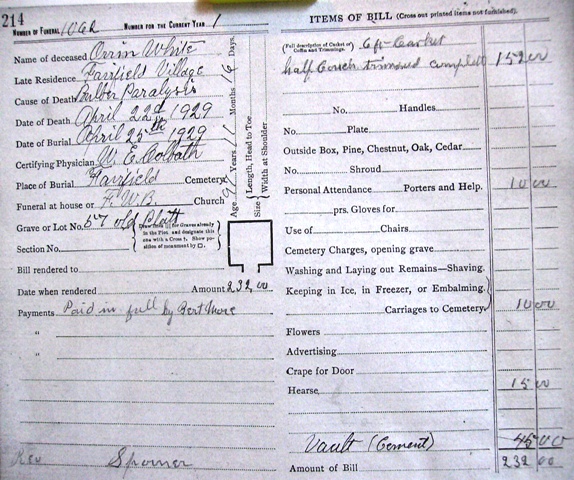 214
NUMBER OF FUNERAL NUMBER FOR THE CURRENT YEAR 1
Name of deceased Orrin White
Late Residence Fairfield Village
Cause of Death Bulber Paralysis
Date of Death April 22d 1929
Date of Burial April 25th 1929
Certifying Physician W. E.
Place of Burial Fairfield Cemetery
Funeral at house or F. W. B. Church
Grave or Lot No. 57 old Platt
Draw lines for Graves already in the Plot, and designate this one with a Cross †. Show position of monument by
Section No.
Bill rendered to
Date when rendered Amount 232,00
Payments Paid in full by Bert More
"
"
Rev Spooner
Age Years 11 Months 16 Days.
Size Length, Head to Toe
Width at Shoulder
ITEMS OF BILL (Cross out printed items not furnished).
(Full description of Casket or Coffin and Trimmings. Casket
half Couch trimmed complete 152 00
No. Handles
No. Plate
Outside Box, Pine, Chestnut, Oak, Cedar
No. Shroud
Personal Attendance Porters and Help. 10 00
prs. Gloves for
Use of Chairs
Cemetery Charges, opening grave
Washing and Laying out Remains—Shaving.
Keeping in Ice, in Freezer, or Embalming.
Carriages to Cemetery 10 00
Flowers
Advertising
Crape for Door
Hearse 15 00
Vault (Cement) 45 00
Amount of Bill 232 00